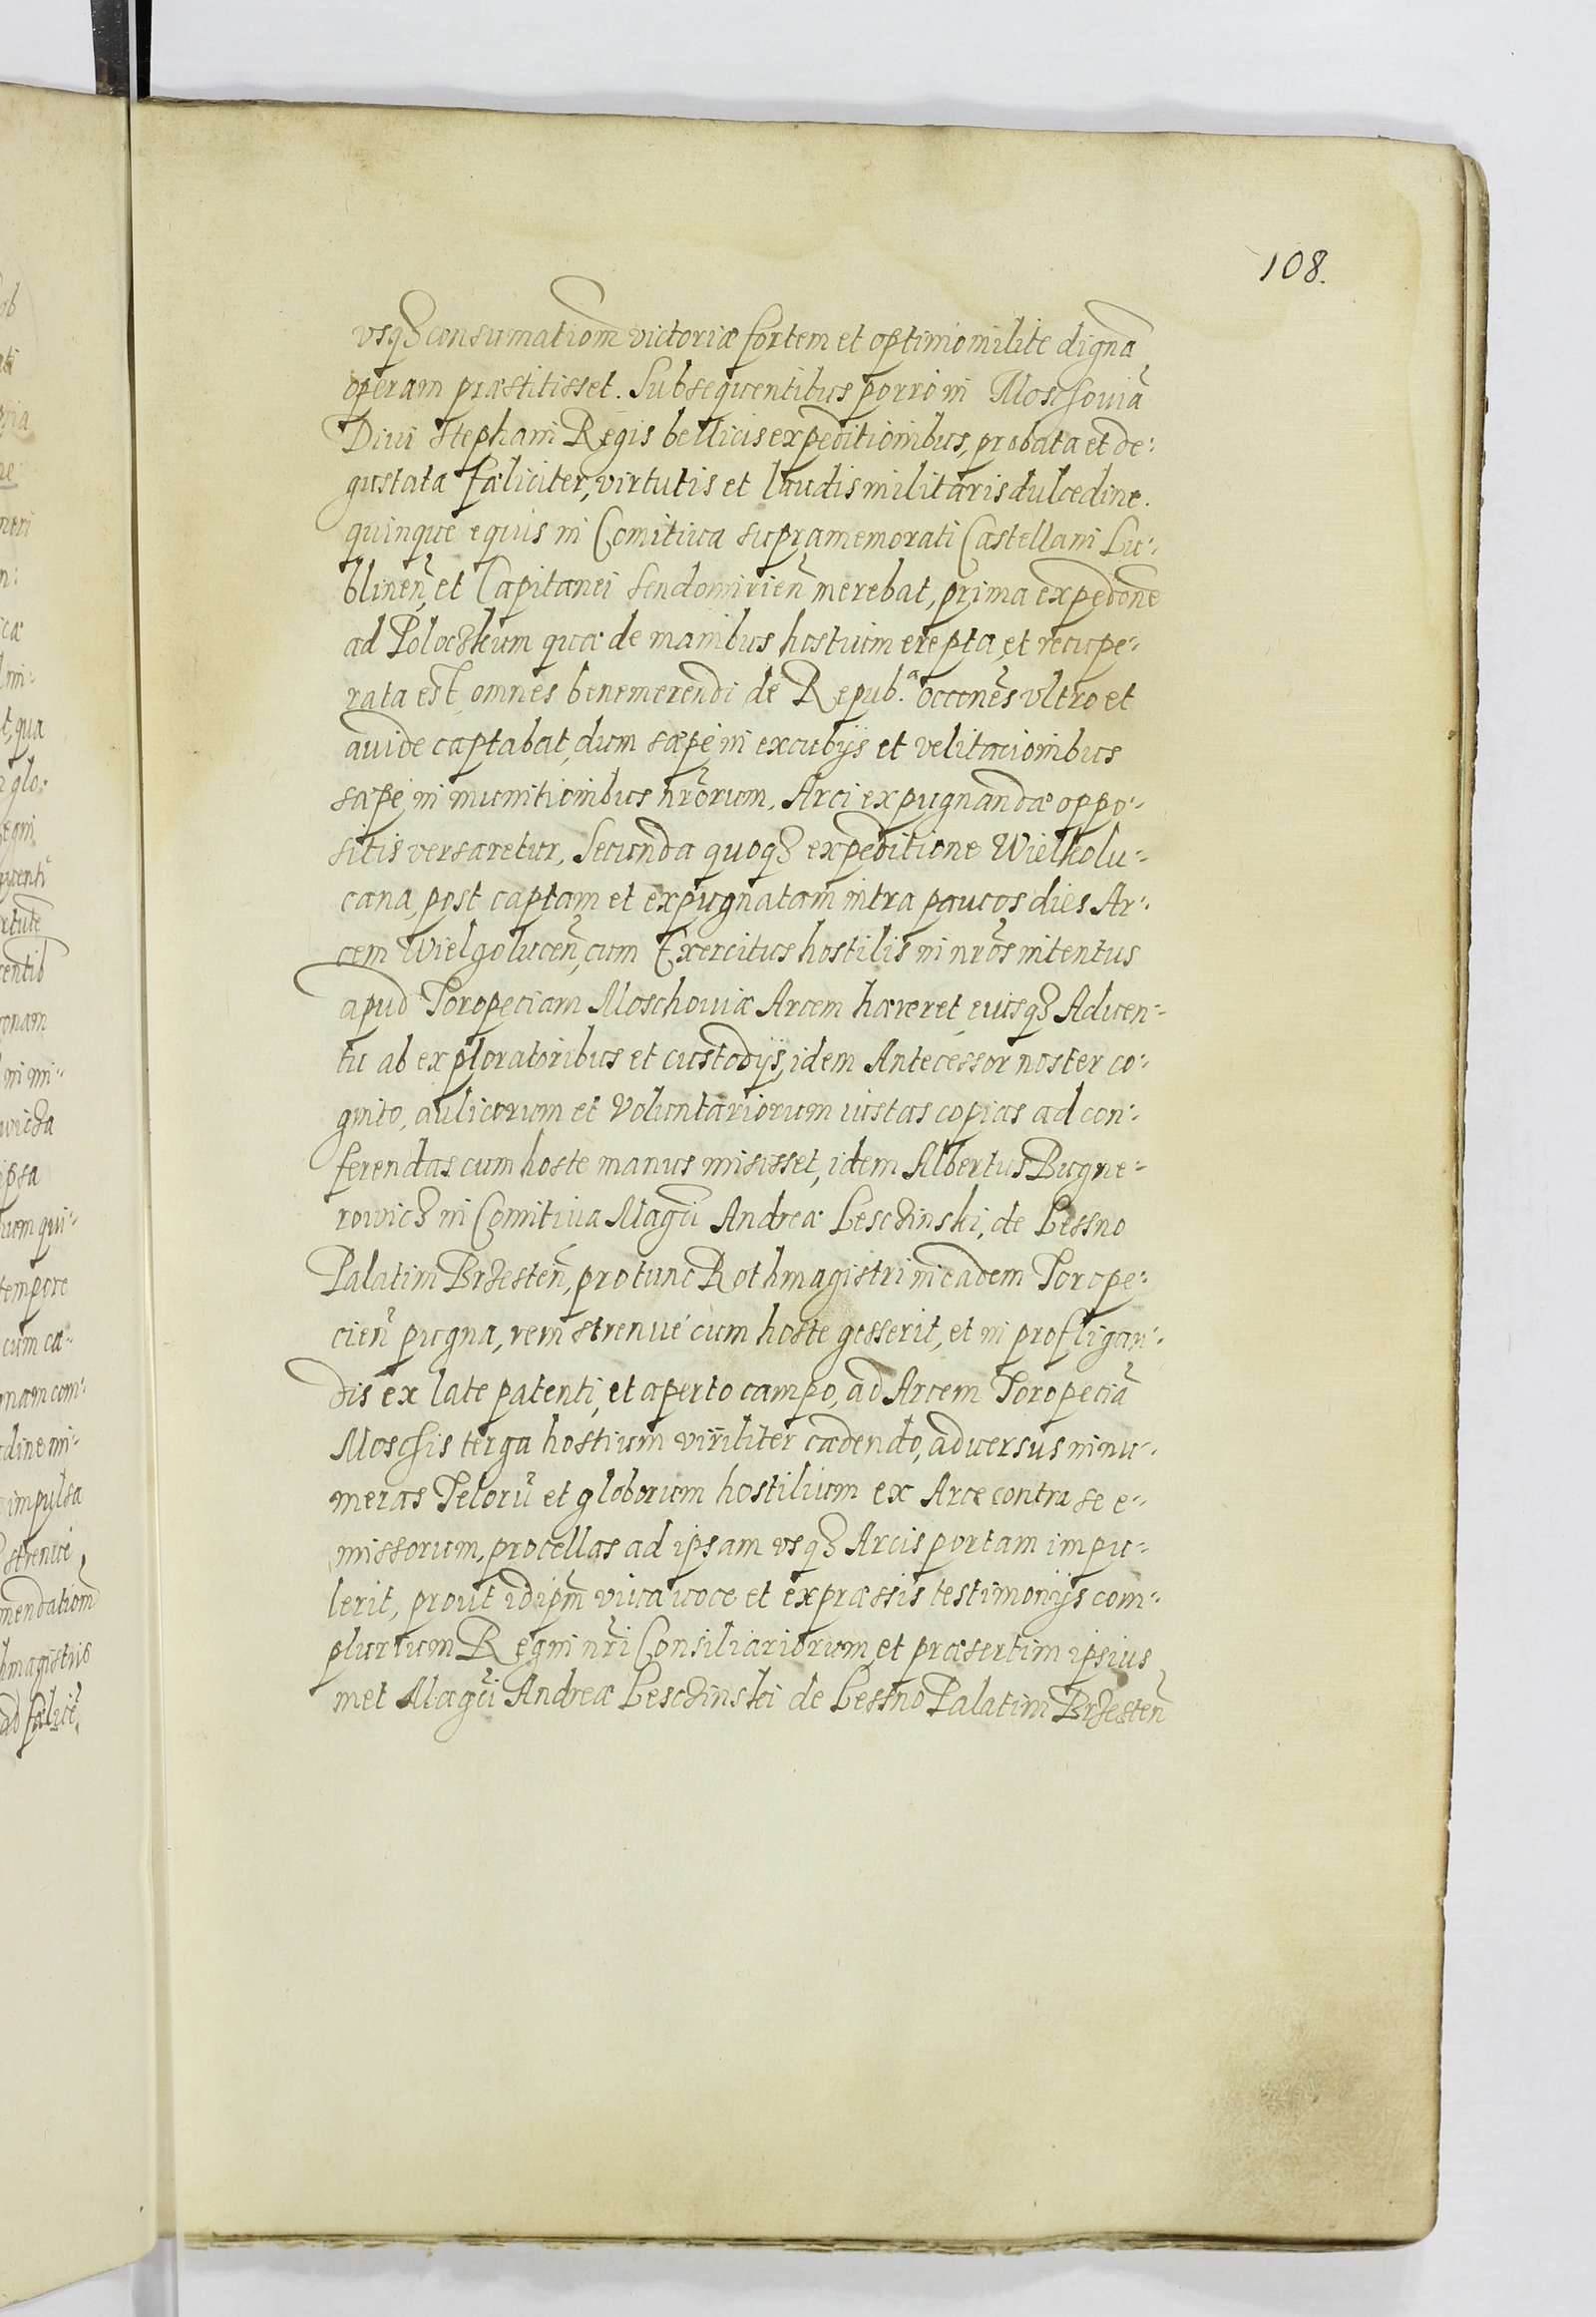 108.
vsq3 consumationẽ victoriæ fortem et optimo milite dignã
operam præstitisset. Subsequentibus porro in Moschouiã
Diui Stephani Regis bellicis expeditionibus, probata et de:
gustata fæliciter, virtutis et laudis militaris dulcedine.
quinque equis in Comitiua supramemorati Castellani Lu:
blineñ, et Capitanei Sendomirieñ merebat, prima expedone
ad Poloczkum quæ de manibus hostium erepta, et recupe:
rata est, omnes benemerendi de Repub.ª occones vltro et
auide captabat, dum sæpe in excubijs et velitacionibus
sæpe in munitionibus nrorum, Arci expugnandæ oppo:
sitis versaretur, Secunda quoq3 expeditione Wielkolu:
cana, post captam et expugnatam intra paucos dies Ar:
cem Wielgoluceñ, cum Exercitus hostilis in nros intentus
apud Toropeciam Moschouiæ Arcem hæreret, eiusq3 Aduen:
tu ab exploratoribus et custodijs, idem Antecessor noster co:
gnito, aulicorum et Voluntariorum iustas copias ad con:
ferendas cum hoste manus misisset, idem Albertus Bugne:
rowicz in Comitiua Magci Andreæ Lesczinski, de Lessno
Palatini Brzesteñ, protunc Rothmagistri in eadem Torope:
cieñ pugna, rem strenue cum hoste gesserit, et in profligan:
dis ex late patenti, et aperto campo, ad Arcem Toropeciã
Moschis terga hostium viriliter cædendo, aduersus innu:
meras Telorũ et globorum hostilium ex Arce contra se e:
missorum, procellas ad ipsam vsq3 Arcis portam impu:
lerit, prout idipm viua uoce et expræssis testimonijs com:
plurium Regni nri Consiliariorum, et præsertim ipsius
met Magci Andreæ Lesczinski de Lessno Palatini Brzesteñ